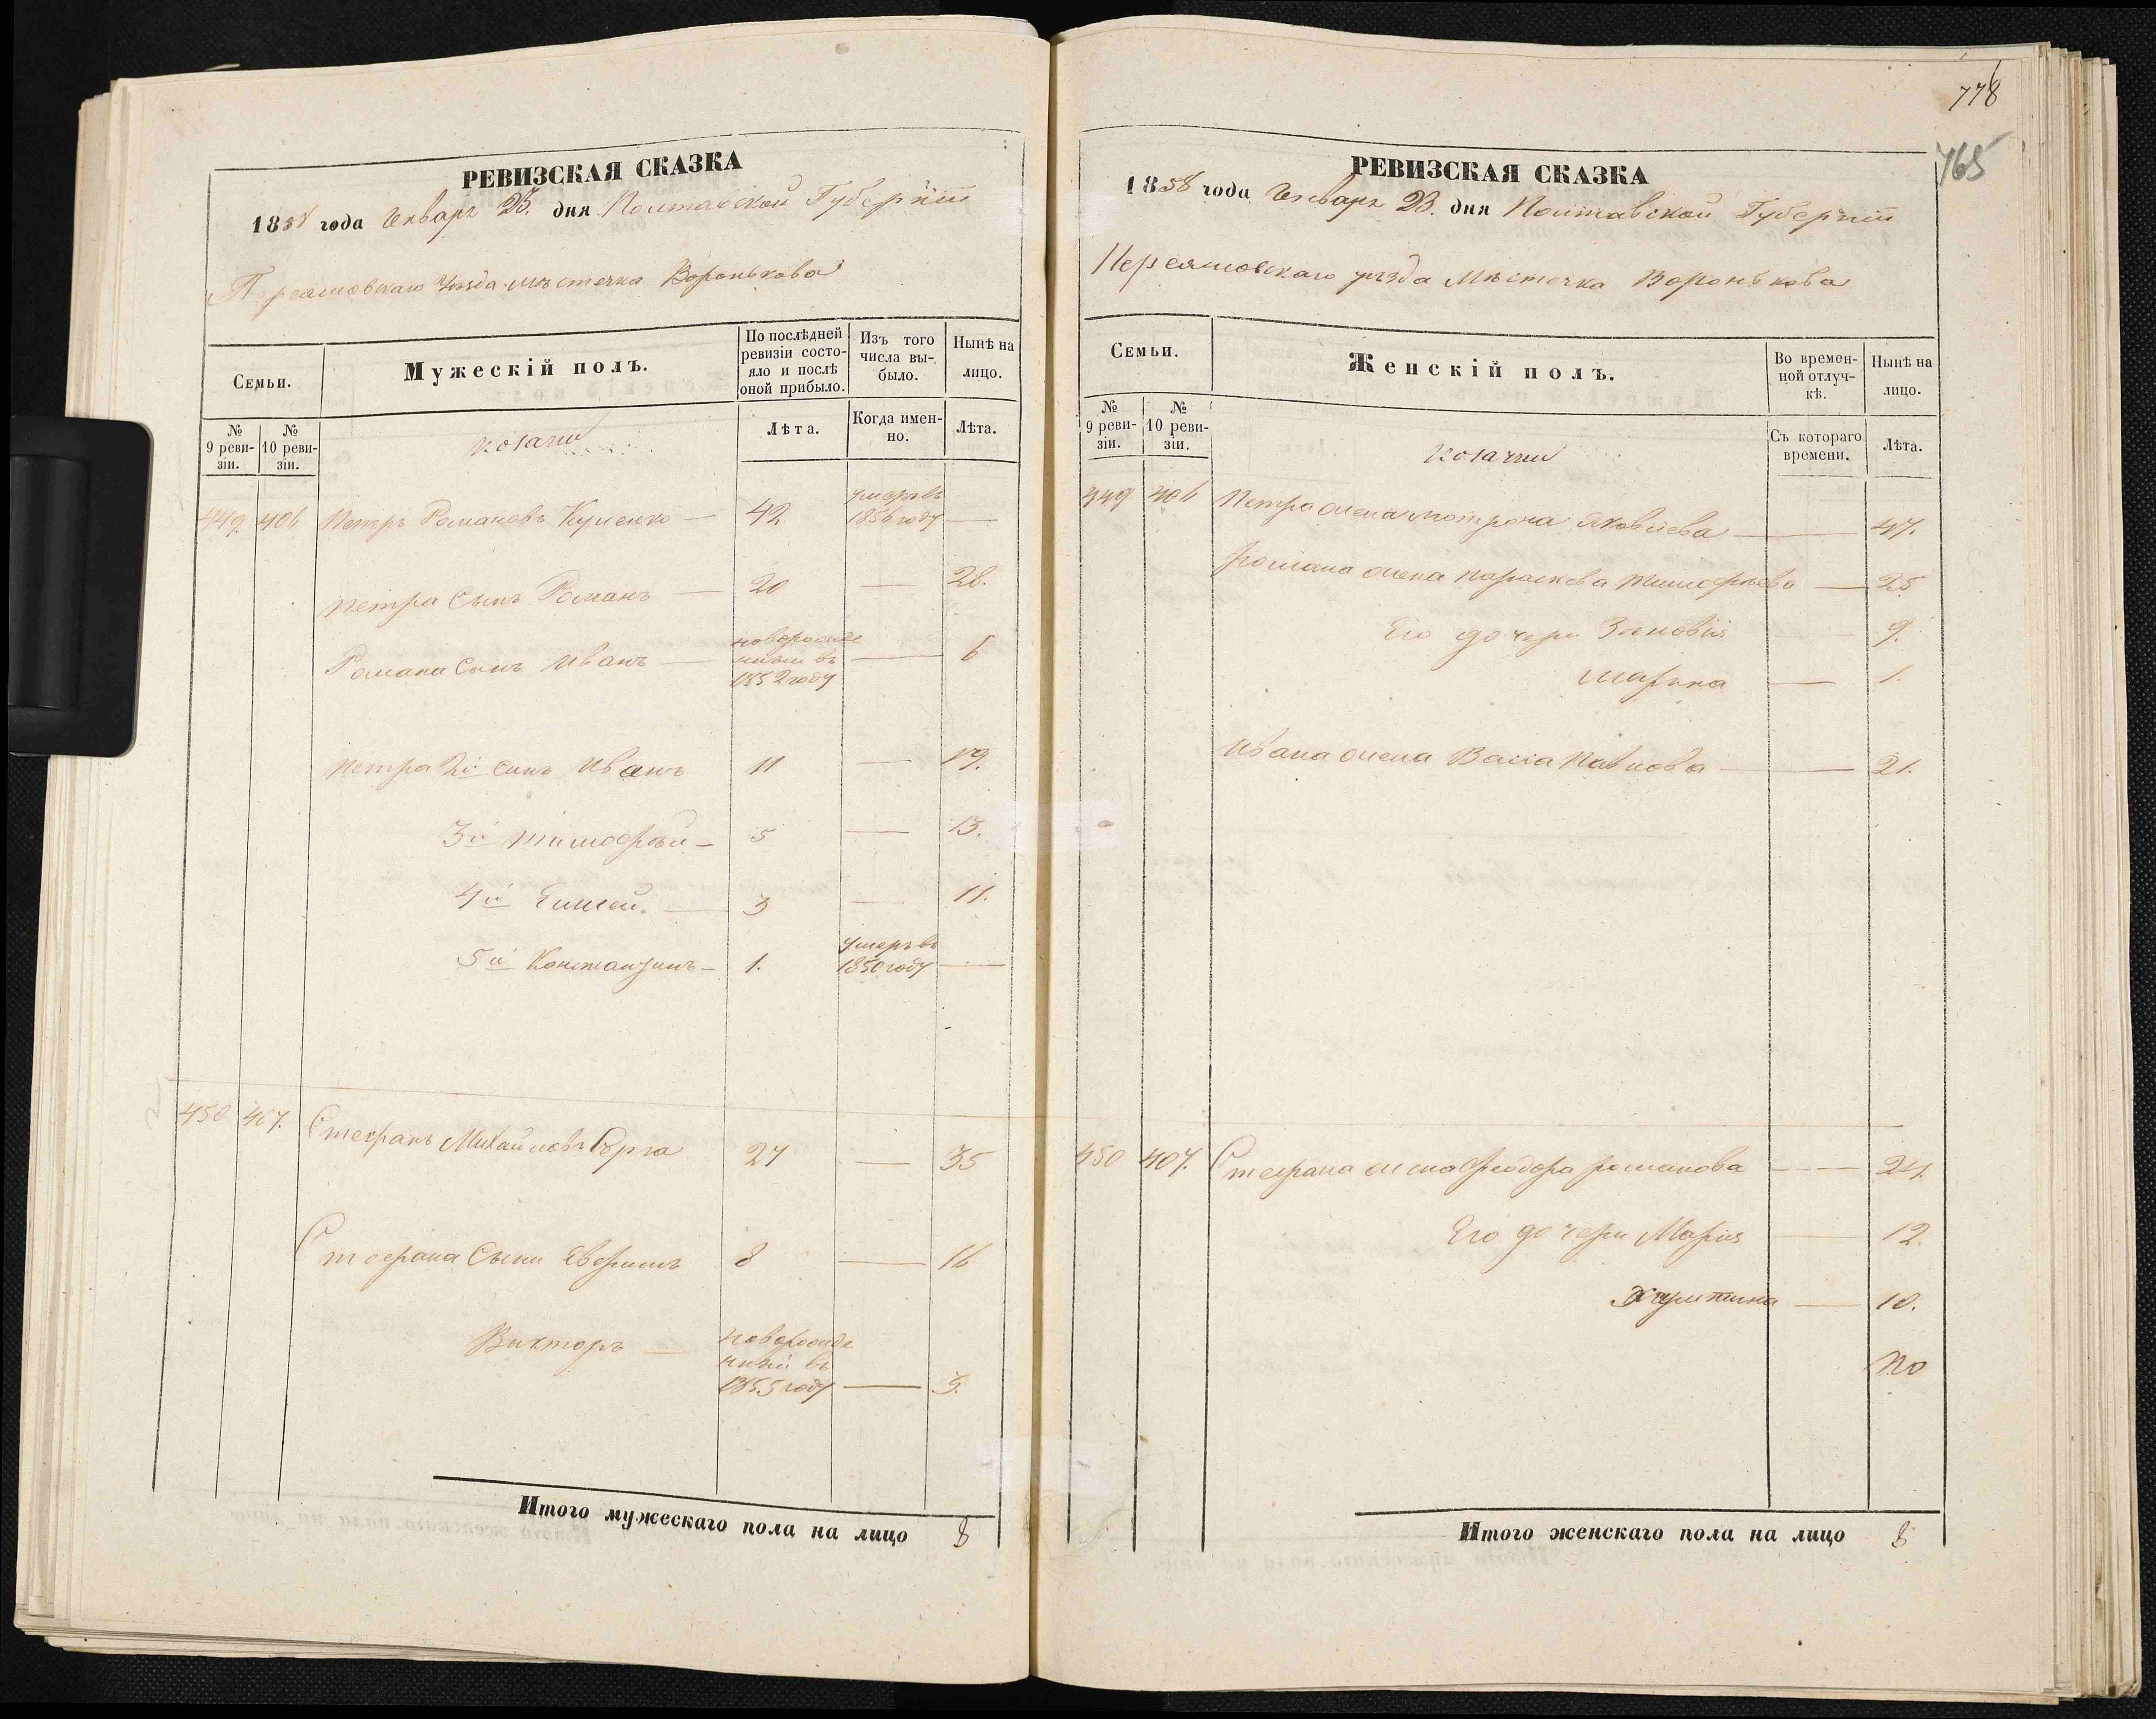 РЕВИЗСКАЯ СКАЗКА
1858 года Января 23. дня Полтавской Губерніи
Переяславскаго уѣзда мѣстечка Воронькова
Семьи.
Мужескій полъ.
По послѣдней ревизіи состояло и послѣ оной прибыло.
Изъ того числа выбыло.
Нынѣ на лицо.
№ 9 ревизіи.
№ 10 ревизіи.
козаки
Лѣта.
Когда именно.
Лѣта.
449. 406 Петръ Романовъ Куценко — 42. умеръ въ 1856 году —
Петра Сынъ Романъ — 20 — 28.
Романа Сынъ Иванъ — новорожденный въ 1852 году — 6
Петра 2й сынъ Иванъ 11 — 19.
3й Тимофѣй — 5 — 13.
4й Елисей. — 3 — 11.
5й Константинъ — 1. умеръ въ 1850 году —
450 407. Стефанъ Михайловъ 27 — 35
Стефана Сыны 8 — 16
Викторъ — новорожденный въ 1855 году — 3.
Итого мужескаго пола на лицо 8
778
765
РЕВИЗСКАЯ СКАЗКА
1858 года Января 23. дня Полтавской Губерніи
Переяславскаго уѣзда Мѣстечка Воронькова
Семьи.
Женскій полъ.
Во временной отлучкѣ.
Нынѣ на лицо.
№ 9 ревизіи.
№ 10 ревизіи.
козачки
Съ котораго времени.
Лѣта.
449 406 Петра жена Мотрона Яковлева — 47.
Романа жена Параскева Тимофѣева — 25
Его дочери Зѣновія — 9.
Марѣна — 1.
Ивана жена Васса Павлова — 21.
450 407. Стефана жена Феодора Романова — 24.
Его дочери Марія — 12.
— 10.
Итого женскаго пола на лицо 8